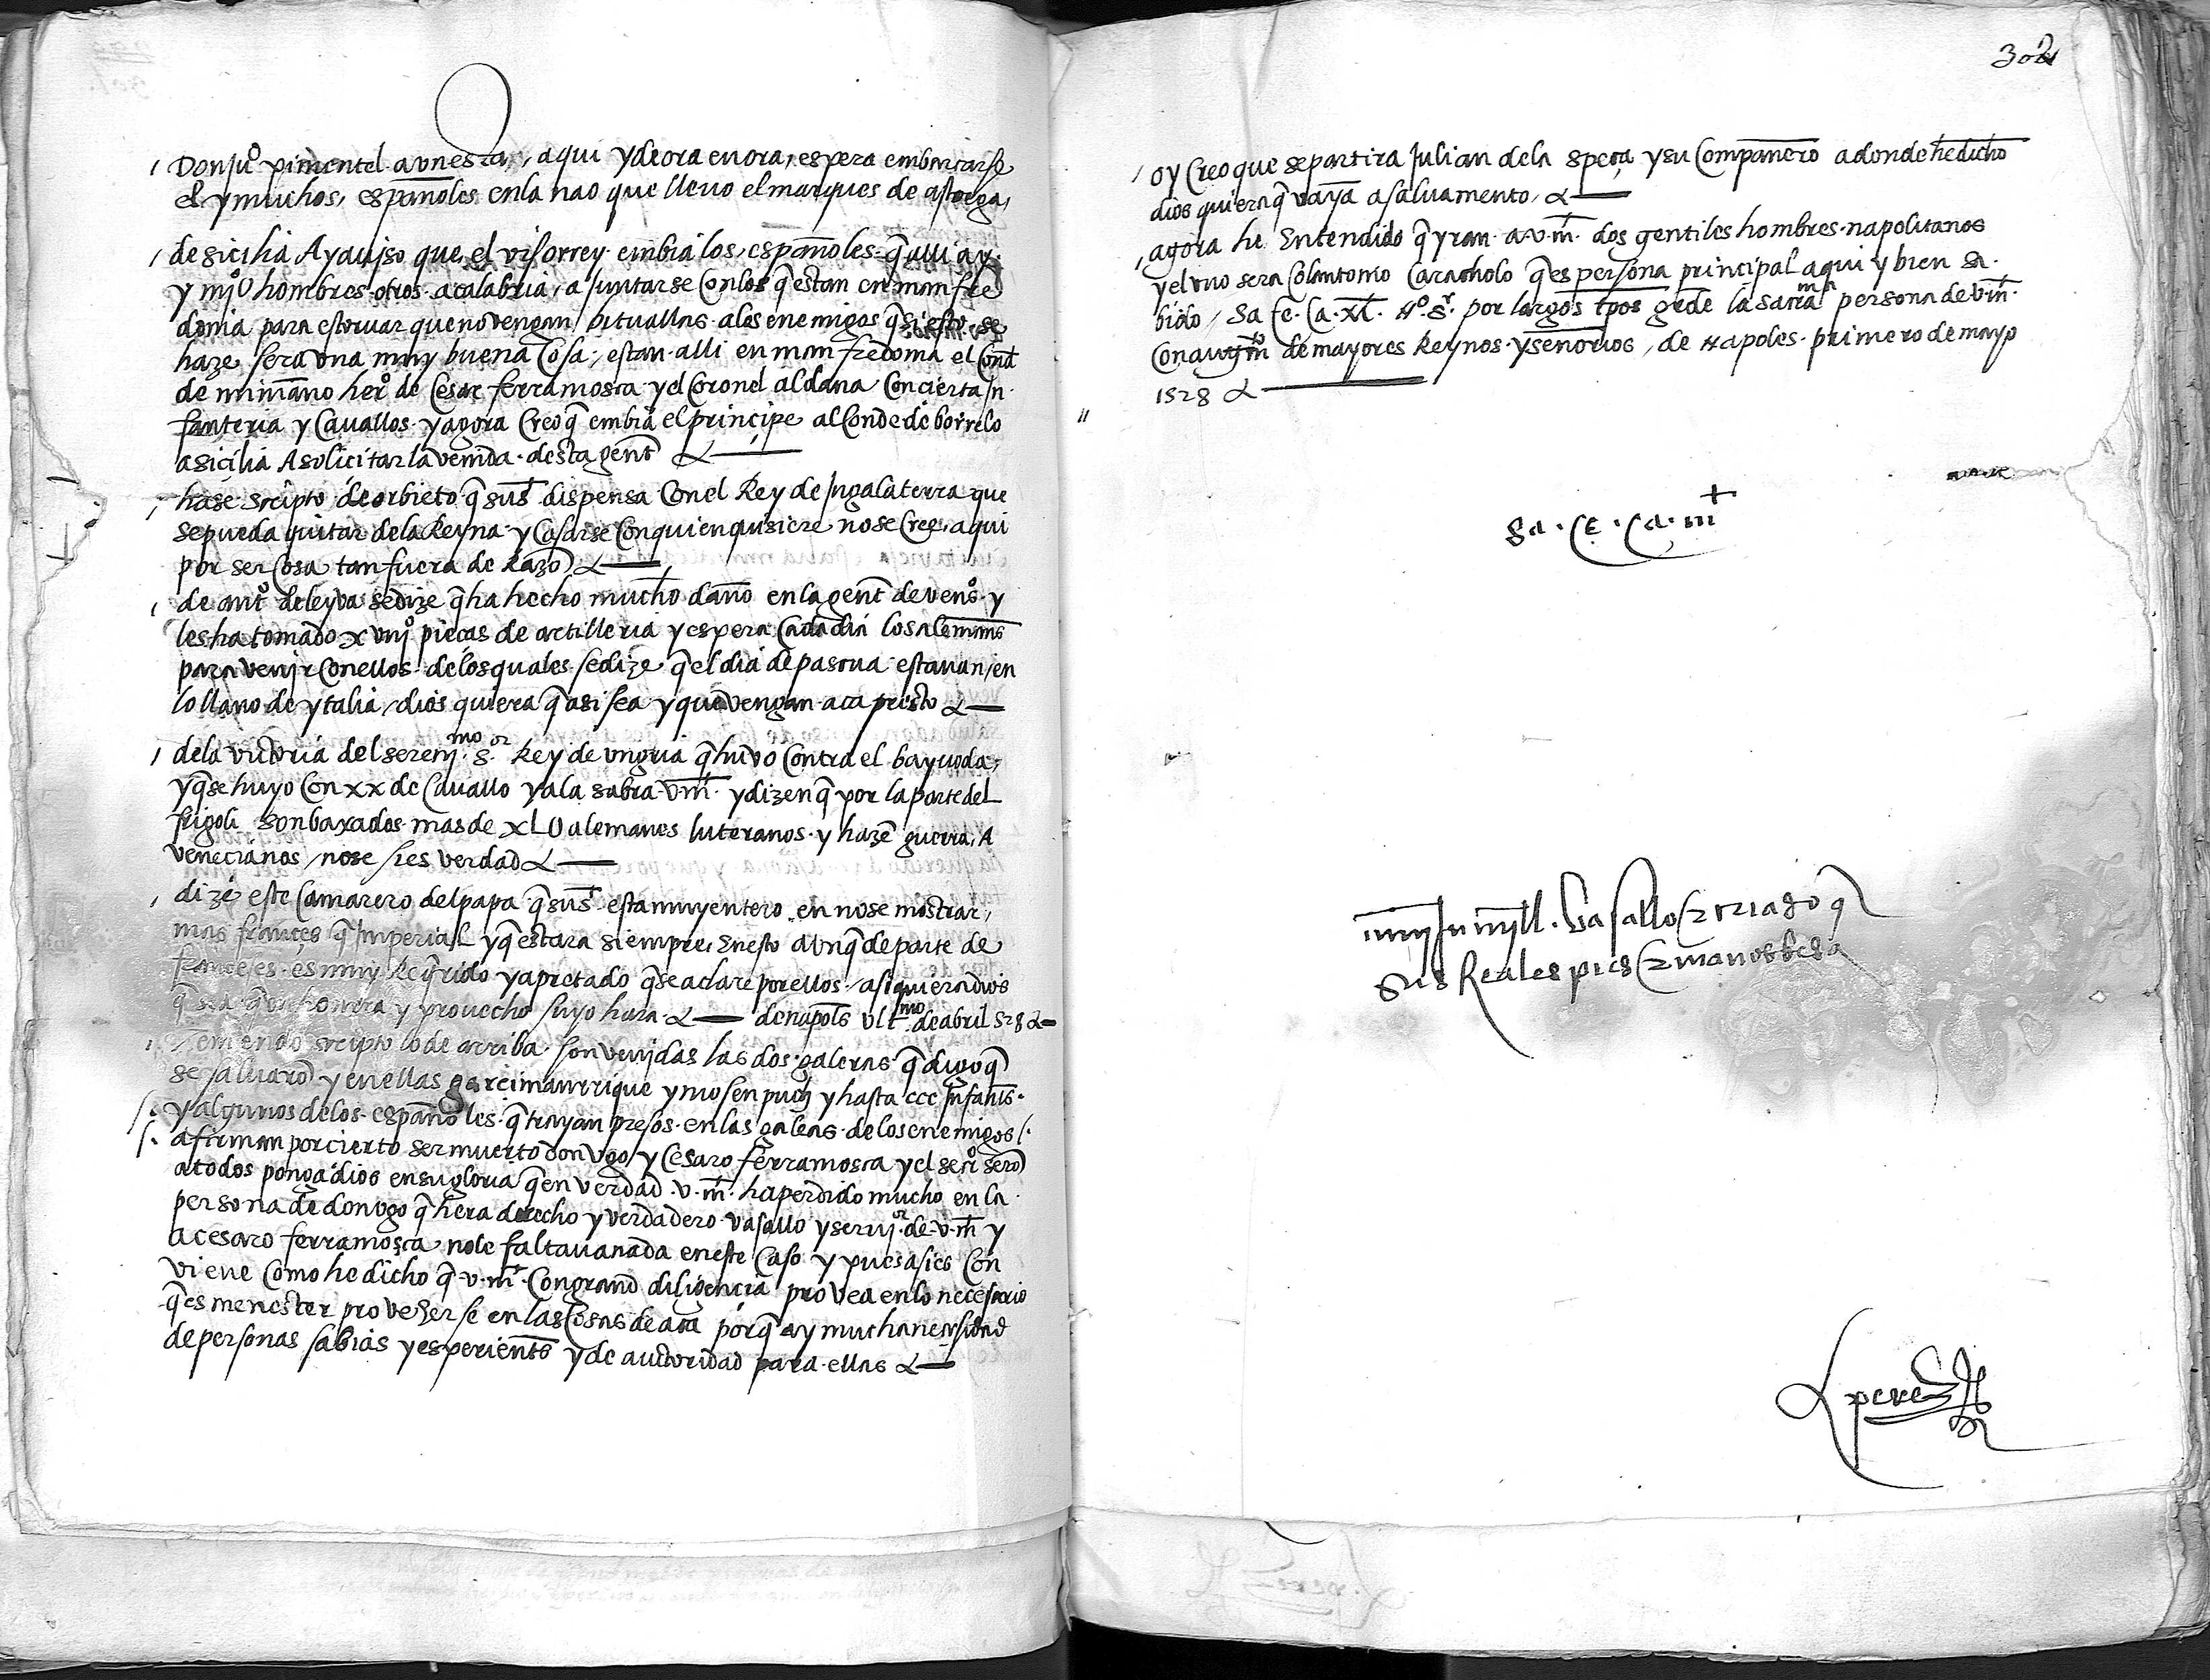 302
Don juº pimentel avn esta aqui y de ora en ora, espera embarcarse
el y muchos, españoles en la nao que lleuo el marques de astorga,
de sicilia Ay auiso que el visorrey embia los españoles q̃ alli ay
y mjº U hombres otros a calabria, a juntarse con los q̃ estan en manfre
donia para estoruar que no vengan bituallas a los enemigos q̃ si esto se
haze sera vna muy buena cosa, estan alli en manfredonia el Cond
de miniano herº de Cesar ferramosca y el Coronel aldana Con cierta jn
fanteria y Cauallos y agora Creo q̃ embia el principe al Conde de borrelo
a sicilia A solicitar la venida desta gent
hase scripto de orbieto q̃ su st dispensa Con el Rey de jngalaterra que
se pueda quitar de la Reyna y Casarse Con quien quisiere no se Cree aqui
por ser Cosa tan fuera de Razõ
de antº de leyva se dize q̃ ha hecho mucho daño en la gent de venos y
les ha tomado x vıȷº pieças de artilleria y espera Cada dia los alemans
para venir Con ellos de los quales se dize q̃ el dia de pascua estauan en
lo llano de ytalia, dios quiera q̃ asi sea y que vengan aca presto
de la victoria del serenj.mo S.or Rey de vngria q̃ huvo Contra el bayuoda,
y q̃ se huyo Con xx de Cauallo ya la sabra v. mt. y dizen q̃ por la parte del
frigoli son baxados mas de xL U alemanes luteranos y hazẽ guerra A
venecianos no se si es verdad
dize este Camarero del papa q̃ su st esta muy entero en no se mostrar,
mas frances q̃ jmperial y q̃ estara siempre En esto avnq̃ de parte de
franceses es muy Req̃rido y apretado q̃ se aclare por ellos asi quiera dios
q̃ sea q̃ en honrra y prouecho suyo hara de napols vlt.mo de abril 528
Teniendo scripto lo de arriba son venjdas las dos galeras q̃ digo q̃
se saluarõ y en ellas garcimanrrique y mosen puch y hasta ccc jnfants
y algunos de los españoles q̃ trayan presos en las galeras de los enemigos
afirman por cierto ser muerto don vgo y Cesaro ferramosca y el serº
a todos ponga dios en su gloria q̃ en verdad v. mt. ha perdido mucho en la
persona de don vgo q̃ hera derecho y verdadero vasallo y serujor de v. mt y
a cesaro ferramosca no le faltaua nada en este Caso y pues asi es Con
viene Como he dicho q̃ v. mt. Con grand diligencia provea en lo necesario
q̃ es menester proveherse en las Cosas de aca porq̃ ay mucha necesidad
de personas sabias y esperients y de auctoridad para ellas
oy Creo que se partira Julian de la speça y su Compañero a donde he dicho
dios quiera q̃ vayã a saluamento,
agora he Entendido q̃ yran a v. mt. dos gentiles hombres napolitanos
y el vno sera Colantonio Caracholo q̃ es persona principal aqui y bien sa
bido / Sa Ce. Ca. Mt. Nº. Sr. por largos tpos gde la sacra ma persona de v. mt.
Con augmto de mayores Reynos y señorios, de Napoles primero de mayo
1528
Sa . Ce . Ca . mt
muy humyll . vasallo Criado q̃
sus Reales pies manos besa
perez